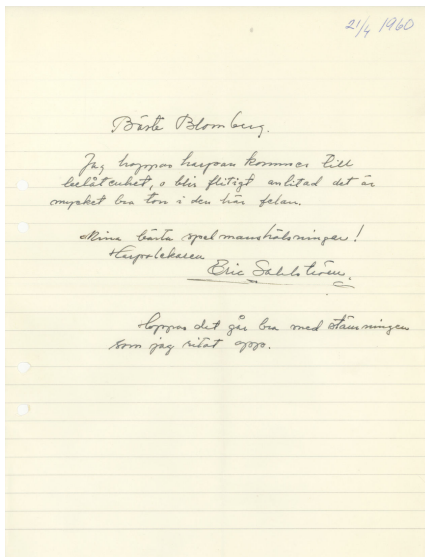 21/4 1960
Bäste Blomberg.
Jag hoppas harpan kommer till
belåtenhet, o blir flitigt anlitad det är
mycket bra ton i den här felan.
Mina bästa spelmanshälsningar!
Harpolekaren
Eric Sahlström.
Hoppas det går bra med stämningen
som jag ritat opp.